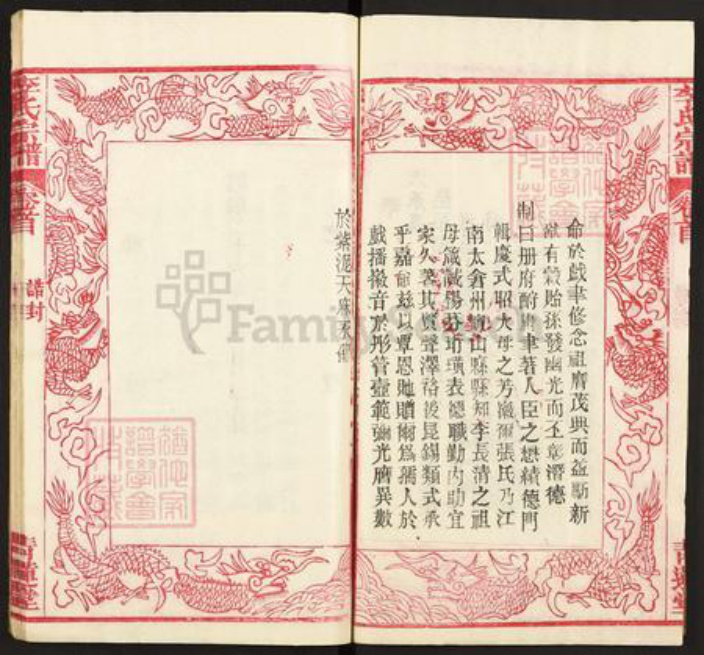 李氏宗譜
卷首
命於戲聿修念祖膺茂典而益勵新
猷有穀貽孫發幽光而丕彰潛德
制曰册府酬勲聿著人臣之懋績德門
輯慶式昭大母之芳徽爾張氏乃江
南太倉州崑山縣縣知李長清之祖
母箴誡揚芬珩璜表德職勤內助宜
家久著其賢聲澤裕後昆錫類式承
乎嘉命兹以覃恩貤贈爾爲孺人於
戲播徽音於彤管壼範彌光膺異數
於紫泥天庥不
李氏宗譜
卷首
誥封